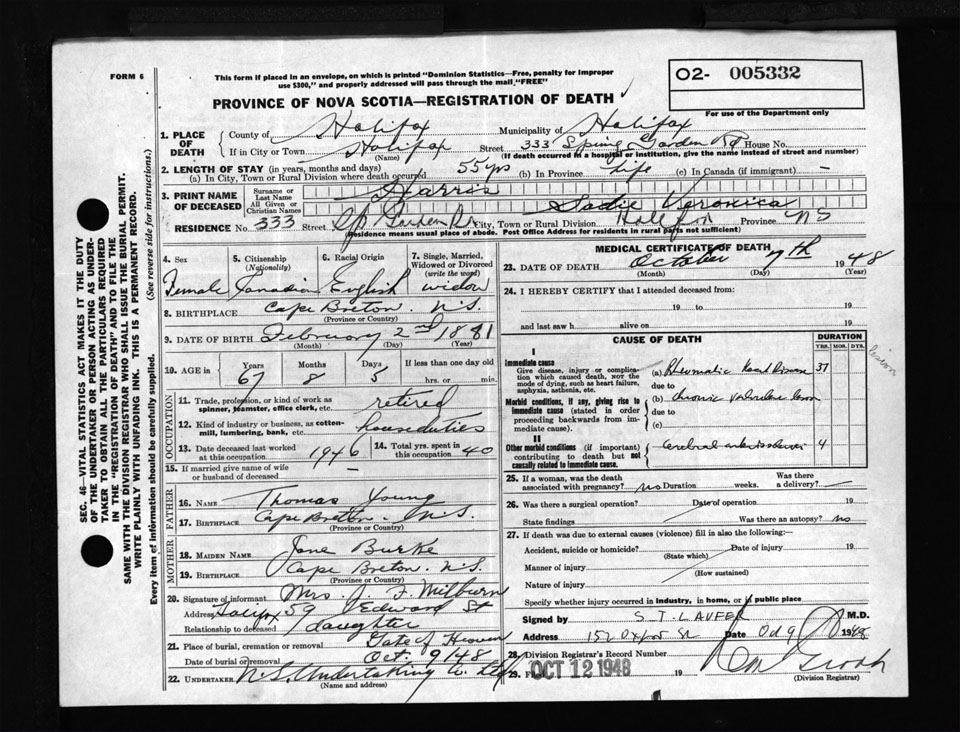 FORM 6
This form if placed in an envelope, on which is printed "Dominion Statistics—Free, penalty for improper
use $300," and properly addressed will pass through the mail, "FREE"
O2- 005332
PROVINCE OF NOVA SCOTIA—REGISTRATION OF DEATH
For use of the Department only
1. PLACE OF DEATH
County of Halifax Municipality of Halifax
If in City or Town Halifax Street 333 Spring Garden Rd House No.
(Name) (If death occurred in a hospital or institution, give the name instead of street and number)
2. LENGTH OF STAY (in years, months and days)
(a) In City, Town or Rural Division where death occurred 55 yrs (b) In Province Life (c) In Canada (if immigrant) —
3. PRINT NAME OF DECEASED
Surname or Last Name Harris
All Given or Christian Names Sadie Veronica
RESIDENCE No. 333 Street Sp Garden Rd City, Town or Rural Division Halifax Province NS
(Residence means usual place of abode. Post Office Address for residents in rural parts not sufficient)
4. Sex Female
5. Citizenship (Nationality) Canadian
6. Racial Origin English
7. Single, Married, Widowed or Divorced (write the word) widow
8. BIRTHPLACE Cape Breton. N.S.
(Province or Country)
9. DATE OF BIRTH February 2nd 1881
(Month) (Day) (Year)
10. AGE in Years 67 Months 8 Days 5 If less than one day old
hrs. or min.
OCCUPATION
11. Trade, profession, or kind of work as spinner, teamster, office clerk, etc. retired
12. Kind of industry or business, as cotton-mill, lumbering, bank, etc. houseduties
13. Date deceased last worked at this occupation 1946
14. Total yrs. spent in this occupation 40
15. If married give name of wife or husband of deceased —
FATHER
16. NAME Thomas Young
17. BIRTHPLACE Cape Breton. N.S.
(Province or Country)
MOTHER
18. MAIDEN NAME Jane Burke
19. BIRTHPLACE Cape Breton. N.S.
(Province or Country)
20. Signature of informant Mrs. J. F. Milburn
Address Halifax 59 Edward St
Relationship to deceased daughter
21. Place of burial, cremation or removal Gate of Heaven
Date of burial or removal Oct. 9/48
22. UNDERTAKER N.S. Undertaking Co. Ltd
(Name and address)
MEDICAL CERTIFICATE OF DEATH
23. DATE OF DEATH October 7th 1948
(Month) (Day) (Year)
24. I HEREBY CERTIFY that I attended deceased from:
19 to 19
and last saw h alive on 19
CAUSE OF DEATH
DURATION
YRS. MOS. DYS.
I
Immediate cause
Give disease, injury or complication which caused death, NOT the mode of dying, such as heart failure, asphyxia, asthenia, etc.
(a) Rheumatic Heart Disease 37
due to
Morbid conditions, if any, giving rise to immediate cause (stated in order proceeding backwards from immediate cause).
(b) chronic valvular lesion
due to
(c)
II
Other morbid conditions (if important) contributing to death but not causally related to immediate cause.
Cerebral arteriosclerosis 4
25. If a woman, was the death associated with pregnancy? no Duration weeks. Was there a delivery? —
26. Was there a surgical operation? Date of operation 19
State findings Was there an autopsy? no
27. If death was due to external causes (violence) fill in also the following:
Accident, suicide or homicide? Date of injury 19
(State which)
Manner of injury
(How sustained)
Nature of injury
Specify whether injury occurred in industry, in home, or in public place
Signed by S. T. LAUFER M.D.
Address 152 Oxford St Date Oct 9 1948
28. Division Registrar's Record Number
29. Filed OCT 12 1948 19
(Division Registrar)
SEC. 46—VITAL STATISTICS ACT MAKES IT THE DUTY
OF THE UNDERTAKER OR PERSON ACTING AS UNDER-
TAKER TO OBTAIN ALL THE PARTICULARS REQUIRED
IN THE "REGISTRATION OF DEATH" AND TO FILE THE
SAME WITH THE DIVISION REGISTRAR WHO SHALL ISSUE THE BURIAL PERMIT.
WRITE PLAINLY WITH UNFADING INK. THIS IS A PERMANENT RECORD.
Every item of Information should be carefully supplied. (See reverse side for instructions.)